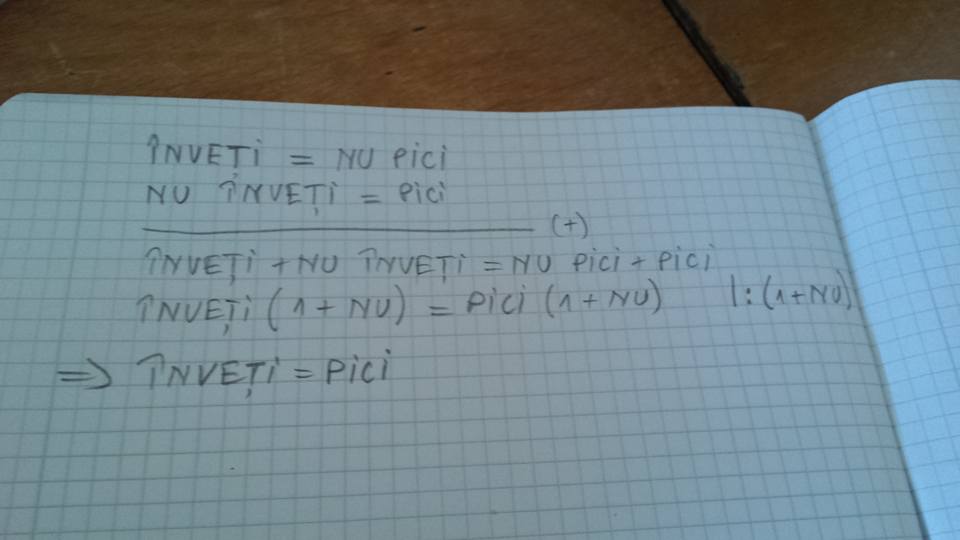 ÎNVEȚI = NU PICI
NU ÎNVEȚI = PICI
(+)
ÎNVEȚI + NU ÎNVEȚI = NU PICI + PICI
ÎNVEȚI (1 + NU) = PICI (1 + NU) |:(1+NU)
=> ÎNVEȚI = PICI